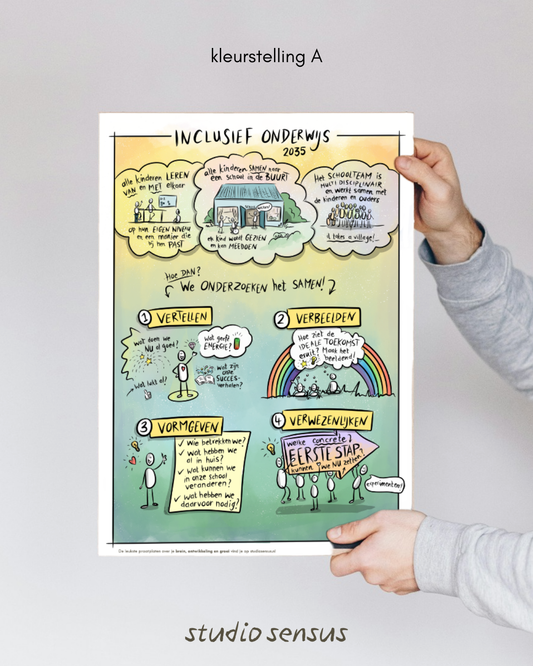 kleurstelling A
INCLUSIEF ONDERWIJS
2035
alle kinderen LEREN
VAN en MET elkaar
op hun EIGEN NIVEAU
en een manier die
bij hen PAST
alle kinderen SAMEN naar
een school in de BUURT
elk kind wordt GEZIEN
en kan MEEDOEN
Het SCHOOLTEAM is
MULTIDISCIPLINAIR
en werkt samen met
de kinderen en ouders
it takes a village!
HOE DAN?
We ONDERZOEKEN het SAMEN!
1 VERTELLEN
wat doen we
NU al goed?
wat geeft
ENERGIE?
wat lukt al?
wat zijn
onze
SUCCES-
verhalen?
2 VERBEELDEN
Hoe ziet de
IDEALE TOEKOMST
eruit? Maak het
beeldend!
3 VORMGEVEN
✓ Wie betrekken we?
✓ Wat hebben we
al in huis?
✓ Wat kunnen we
in onze school
veranderen?
✓ Wat hebben we
daarvoor nodig?
4 VERWEZENLIJKEN
Welke concrete
EERSTE STAP
kunnen we NU zetten?
experimenten!
De leukste praatplaten over je brein, ontwikkeling en groei vind je op studiosensus.nl
studio sensus